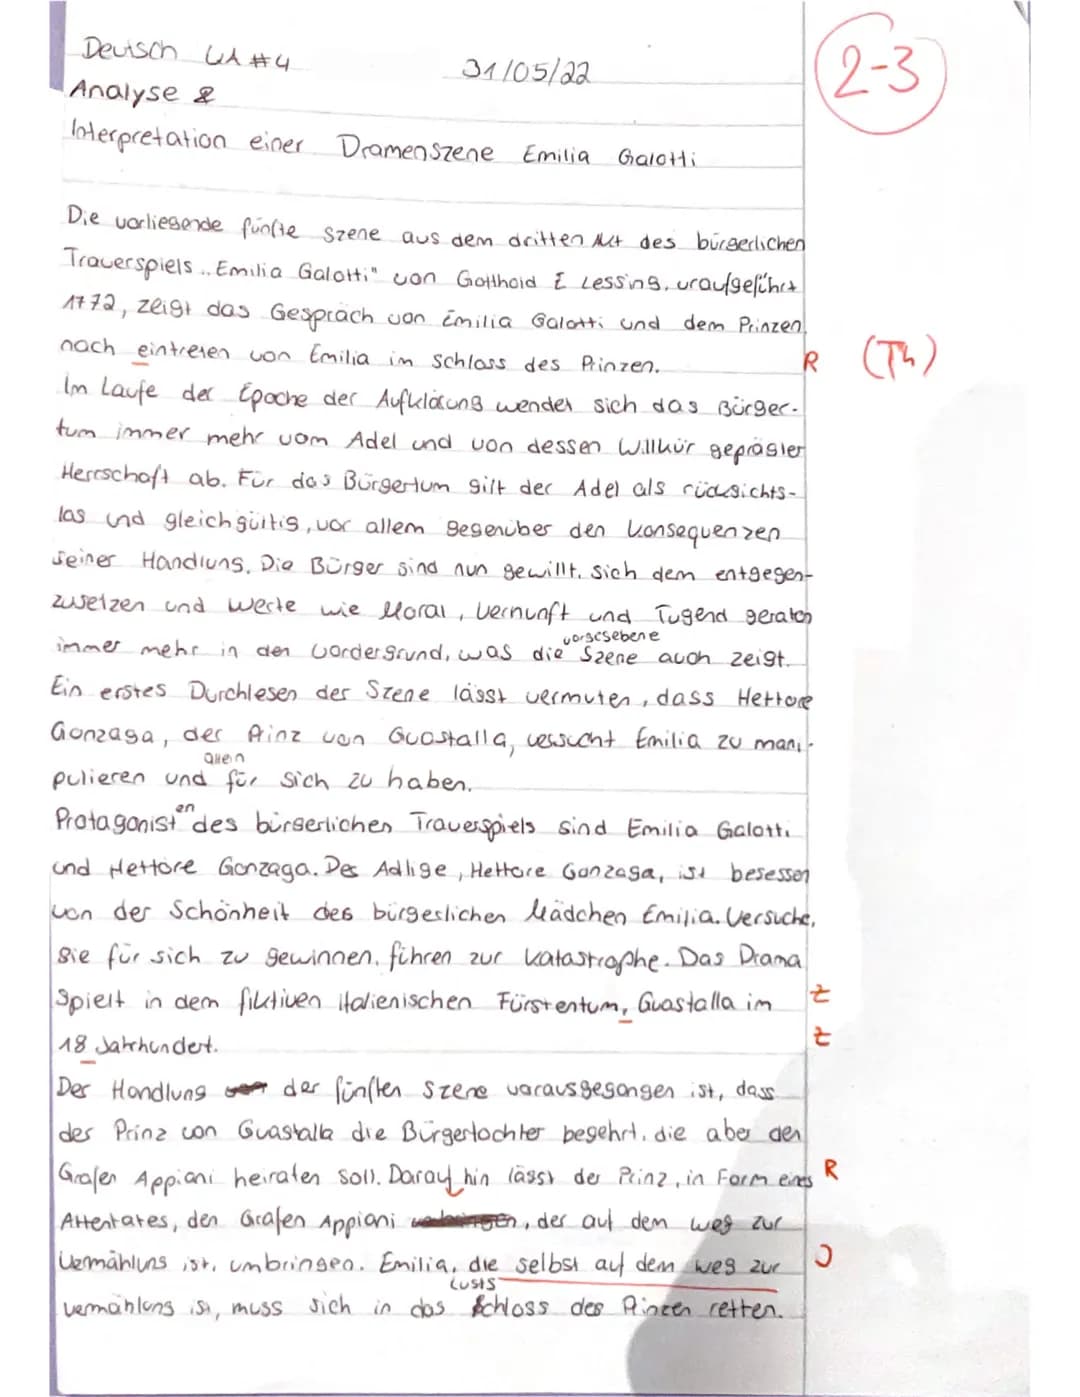 Deutsch LA #4 31/05/22 2-3
Analyse &
Interpretation einer Dramenszene Emilia Galotti
Die vorliegende fünfte Szene aus dem dritten Akt des bürgerlichen
Trauerspiels „Emilia Galotti" von Gotthold E Lessing, uraufgeführt
1772, zeigt das Gespräch von Emilia Galotti und dem Prinzen,
nach eintreten von Emilia im schloss des Prinzen. R (Th)
Im Laufe der Epoche der Aufklärung wendet sich das Bürger-
tum immer mehr vom Adel und von dessen Willkür geprägter
Herrschaft ab. Für das Bürgertum gilt der Adel als rücksichts-
los und gleichgültig, vor allem gegenüber den Konsequenzen
seiner Handlung. Die Bürger sind nun gewillt, sich dem entgegen-
zusetzen und werte wie Moral, Vernunft und Tugend geraten
immer mehr in den Vordergrund, was die vorgegebene Szene auch zeigt.
Ein erstes Durchlesen der Szene lässt vermuten, dass Hettore
Gonzaga, der Prinz von Guastalla, versucht Emilia zu mani-
pulieren und allein für sich zu haben.
Protagonisten des bürgerlichen Trauerspiels sind Emilia Galotti
und Hettore Gonzaga. Der Adlige, Hettore Gonzaga, ist besessen
von der Schönheit des bürgerlichen Mädchen Emilia. Versuche,
sie für sich zu gewinnen, führen zur Katastrophe. Das Drama
spielt in dem fiktiven italienischen Fürstentum, Guastalla im Z
18 Jahrhundert. Z
Der Handlung der fünften Szene vorausgegangen ist, dass
der Prinz von Guastalla die Bürgertochter begehrt, die aber den
Grafen Appiani heiraten soll. Darauf hin lässt der Prinz, in Form eines R
Attentates, den Grafen Appiani, der auf dem weg zur
Vermählung ist, umbringen. Emilia, die selbst auf dem weg zur
vermählung ist, muss sich in das Lustschloss des Prinzen retten.